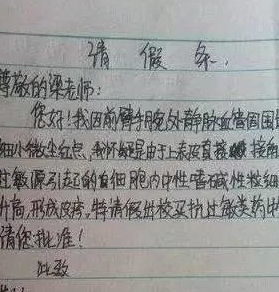 请假条
尊敬的梁老师:
您好!我因前臂手腕处外静脉血管周围
细小微尘红点,我怀疑是由于上表皮直接接
过敏源引起的白细胞内中性嗜碱性粒细
升高,形成皮疹。特请假出校买抗过敏类药
请您批准!
此致